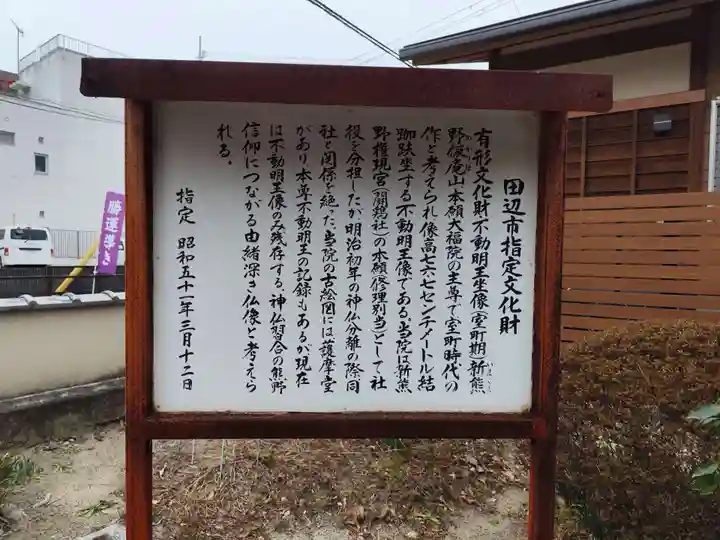 田辺市指定文化財
有形文化財不動明王坐像(室町期)新熊
野仮庵山本願大福院の主尊で室町時代の
作と考えられ像高七六・七センチメートル結
跏趺坐する不動明王像である。当院は新熊
野権現宮(闘鶏社)の本願(修理別当)として社
役を分担したが明治初年の神仏分離の際同
社と関係を絶った。当院の古絵図には護摩堂
があり本尊不動明王の記録もあるが現在
は不動明王像のみ残存する。神仏習合の熊野
信仰につながる由緒深き仏像と考えら
れる。
指定 昭和五十一年三月十二日
勝運導き